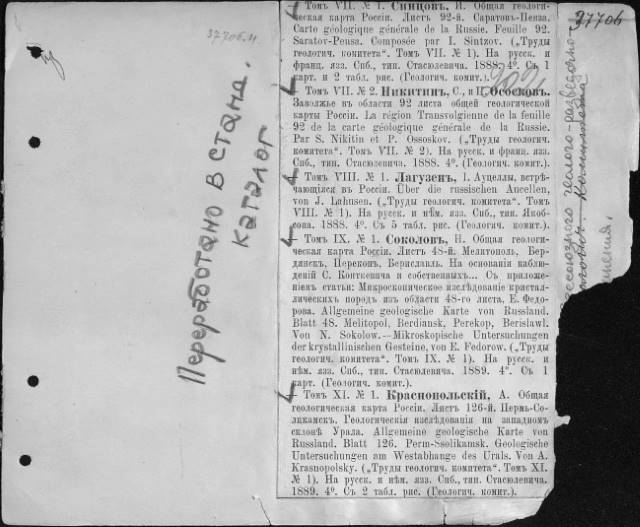 37706.И
Переработано в станд.
каталог
Томъ VII. № 1. Синцовъ, И. Общая геологи-
ческая карта Россіи. Листъ 92-й. Саратовъ-Пенза.
Carte géologique générale de la Russie. Feuille 92.
Saratov-Pensa. Composée par I. Sintzov. („Труды
геологич. комитета". Томъ VII. № 1). На русск. и
франц. язз. Спб., тип. Стасюлевича. 1888. 4⁰. Съ 1
карт. и 2 табл. рис. (Геологич. комит.).
Томъ VII. № 2. Никитинъ, С., и П. Ососковъ.
Заволжье въ области 92 листа общей геологической
карты Россіи. La région Transvolgienne de la feuille
92 de la carte géologique générale de la Russie.
Par S. Nikitin et P. Ossoskov. („Труды геологич.
комитета". Томъ VII. № 2). На русск. и франц. язз.
Спб., тип. Стасюлевича. 1888. 4⁰. (Геологич. комит.).
Томъ VIII. № 1. Лагузенъ, І. Ауцеллы, встрѣ-
чающіяся въ Россіи. Über die russischen Aucellen,
von J. Lahusen. („Труды геологич. комитета". Томъ
VIII. № 1). На русск. и нѣм. язз. Спб., тип. Якоб-
сона. 1888. 4⁰. Съ 5 табл. рис. (Геологич. комит.).
Томъ IX. № 1. Соколовъ, Н. Общая геологи-
ческая карта Россіи. Листъ 48-й. Мелитополь, Бер-
дянскъ, Перекопъ, Бериславль. На основаніи наблю-
деній С. Конткевича и собственныхъ... Съ приложе-
ніемъ статьи: Микроскопическое изслѣдованіе кристал-
лическихъ породъ изъ области 48-го листа, Е. Федо-
рова. Allgemeine geologische Karte von Russland.
Blatt 48. Melitopol, Berdiansk, Perekop, Berislawl.
Von N. Sokolow.—Mikroskopische Untersuchungen
der krystallinischen Gesteine, von E. Fedorow. („Труды
геологич. комитета". Томъ IX. № 1). На русск. и
нѣм. язз. Спб., тип. Стасюлевича. 1889. 4⁰. Съ 1
карт. (Геологич. комит.).
Томъ XI. № 1. Краснопольскій, А. Общая
геологическая карта Россіи. Листъ 126-й. Пермь-Со-
ликамскъ. Геологическія изслѣдованія на западномъ
склонѣ Урала. Allgemeine geologische Karte von
Russland. Blatt 126. Perm-Ssolikamsk. Geologische
Untersuchungen am Westabhange des Urals. Von A.
Krasnopolsky. („Труды геологич. комитета". Томъ XI.
№ 1). На русск. и нѣм. язз. Спб., тип. Стасюлевича.
1889. 4⁰. Съ 2 табл. рис. (Геологич. комит.).
37706
геолого-разведочно
комитета